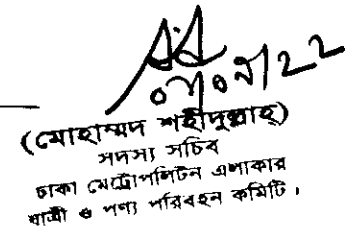 (মোহাম্মদ শহীদুল্লাহ)
সদস্য সচিব
ঢাকা মেট্রোপলিটন এলাকার
যাত্রী ও পণ্য পরিবহন কমিটি।